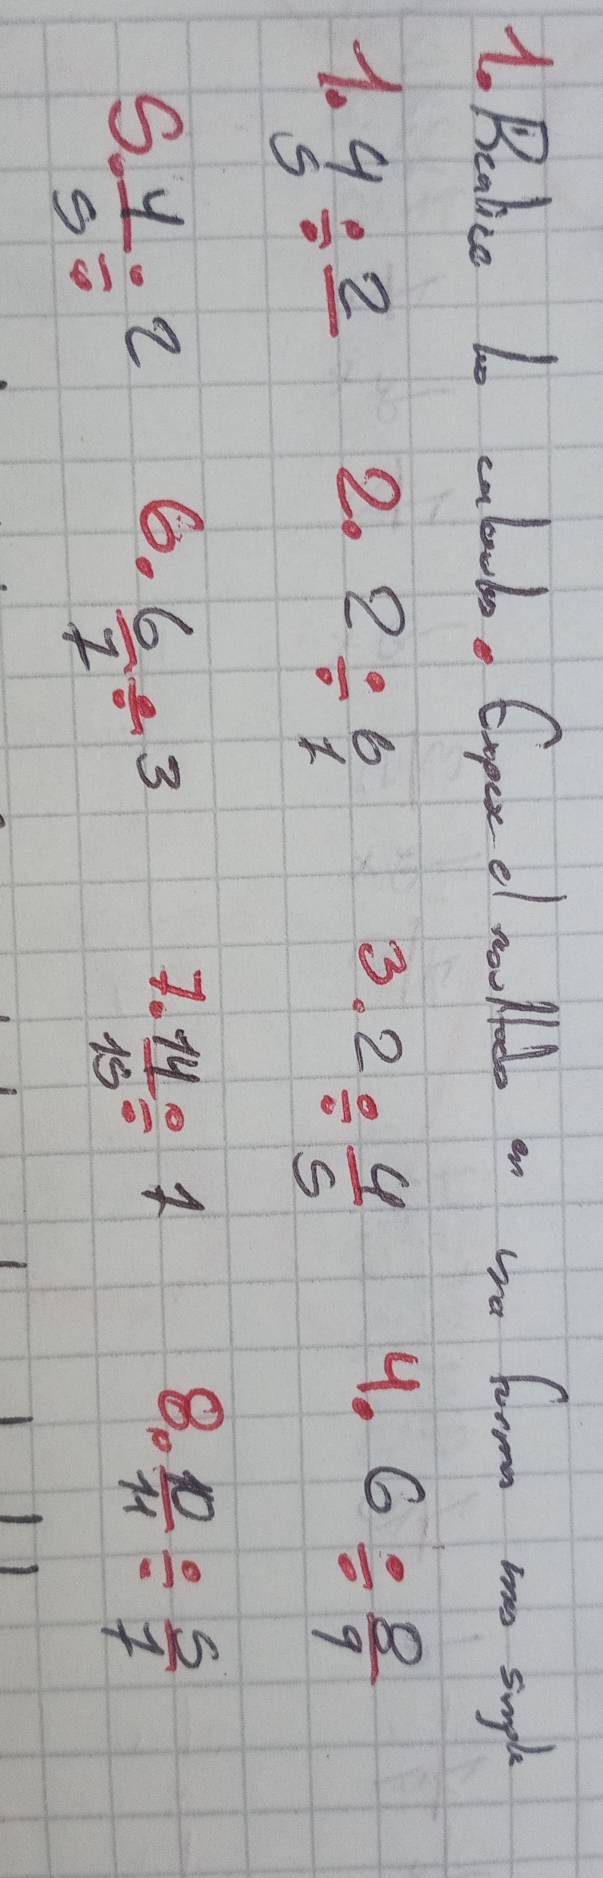 1. Realice los calculos. Exprese el resultado en una forma mas simple
1. 4/5 ÷ 2 2. 2 ÷ 6/7 3. 2 ÷ 4/5 4. 6 ÷ 8/9
5. 4/5 ÷ 2 6. 6/7 ÷ 3 7. 14/15 ÷ 7 8. 10/11 ÷ 5/7